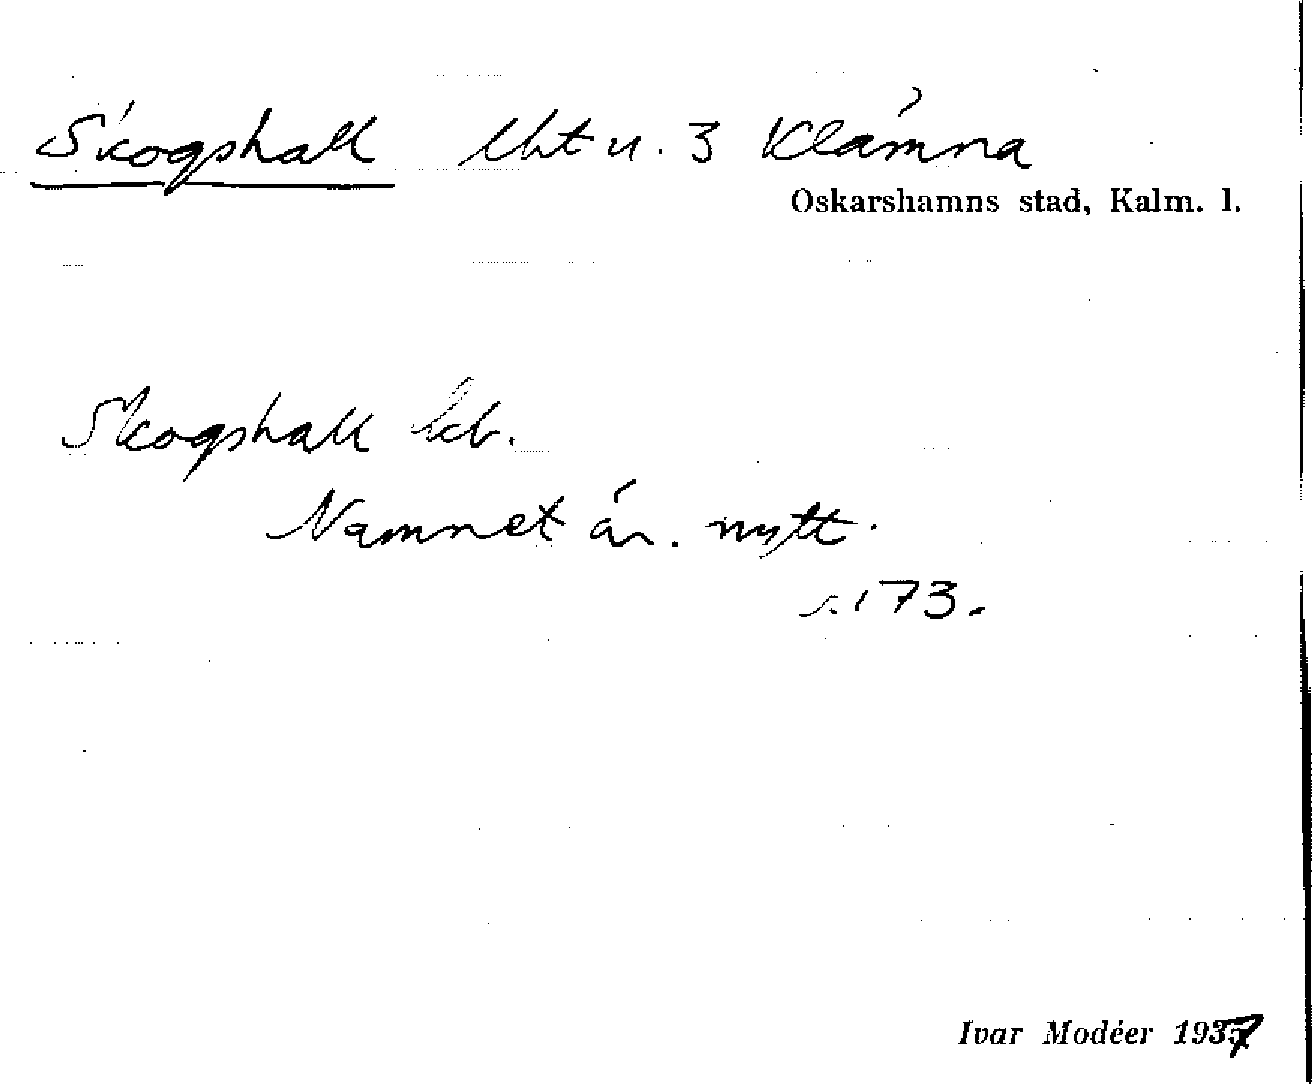 Skogshall lht u. 3 Klämna
Oskarshamns stad, Kalm. l.
Skogshall kb.
Namnet är. nytt.
s. 173.
Ivar Modéer 1937